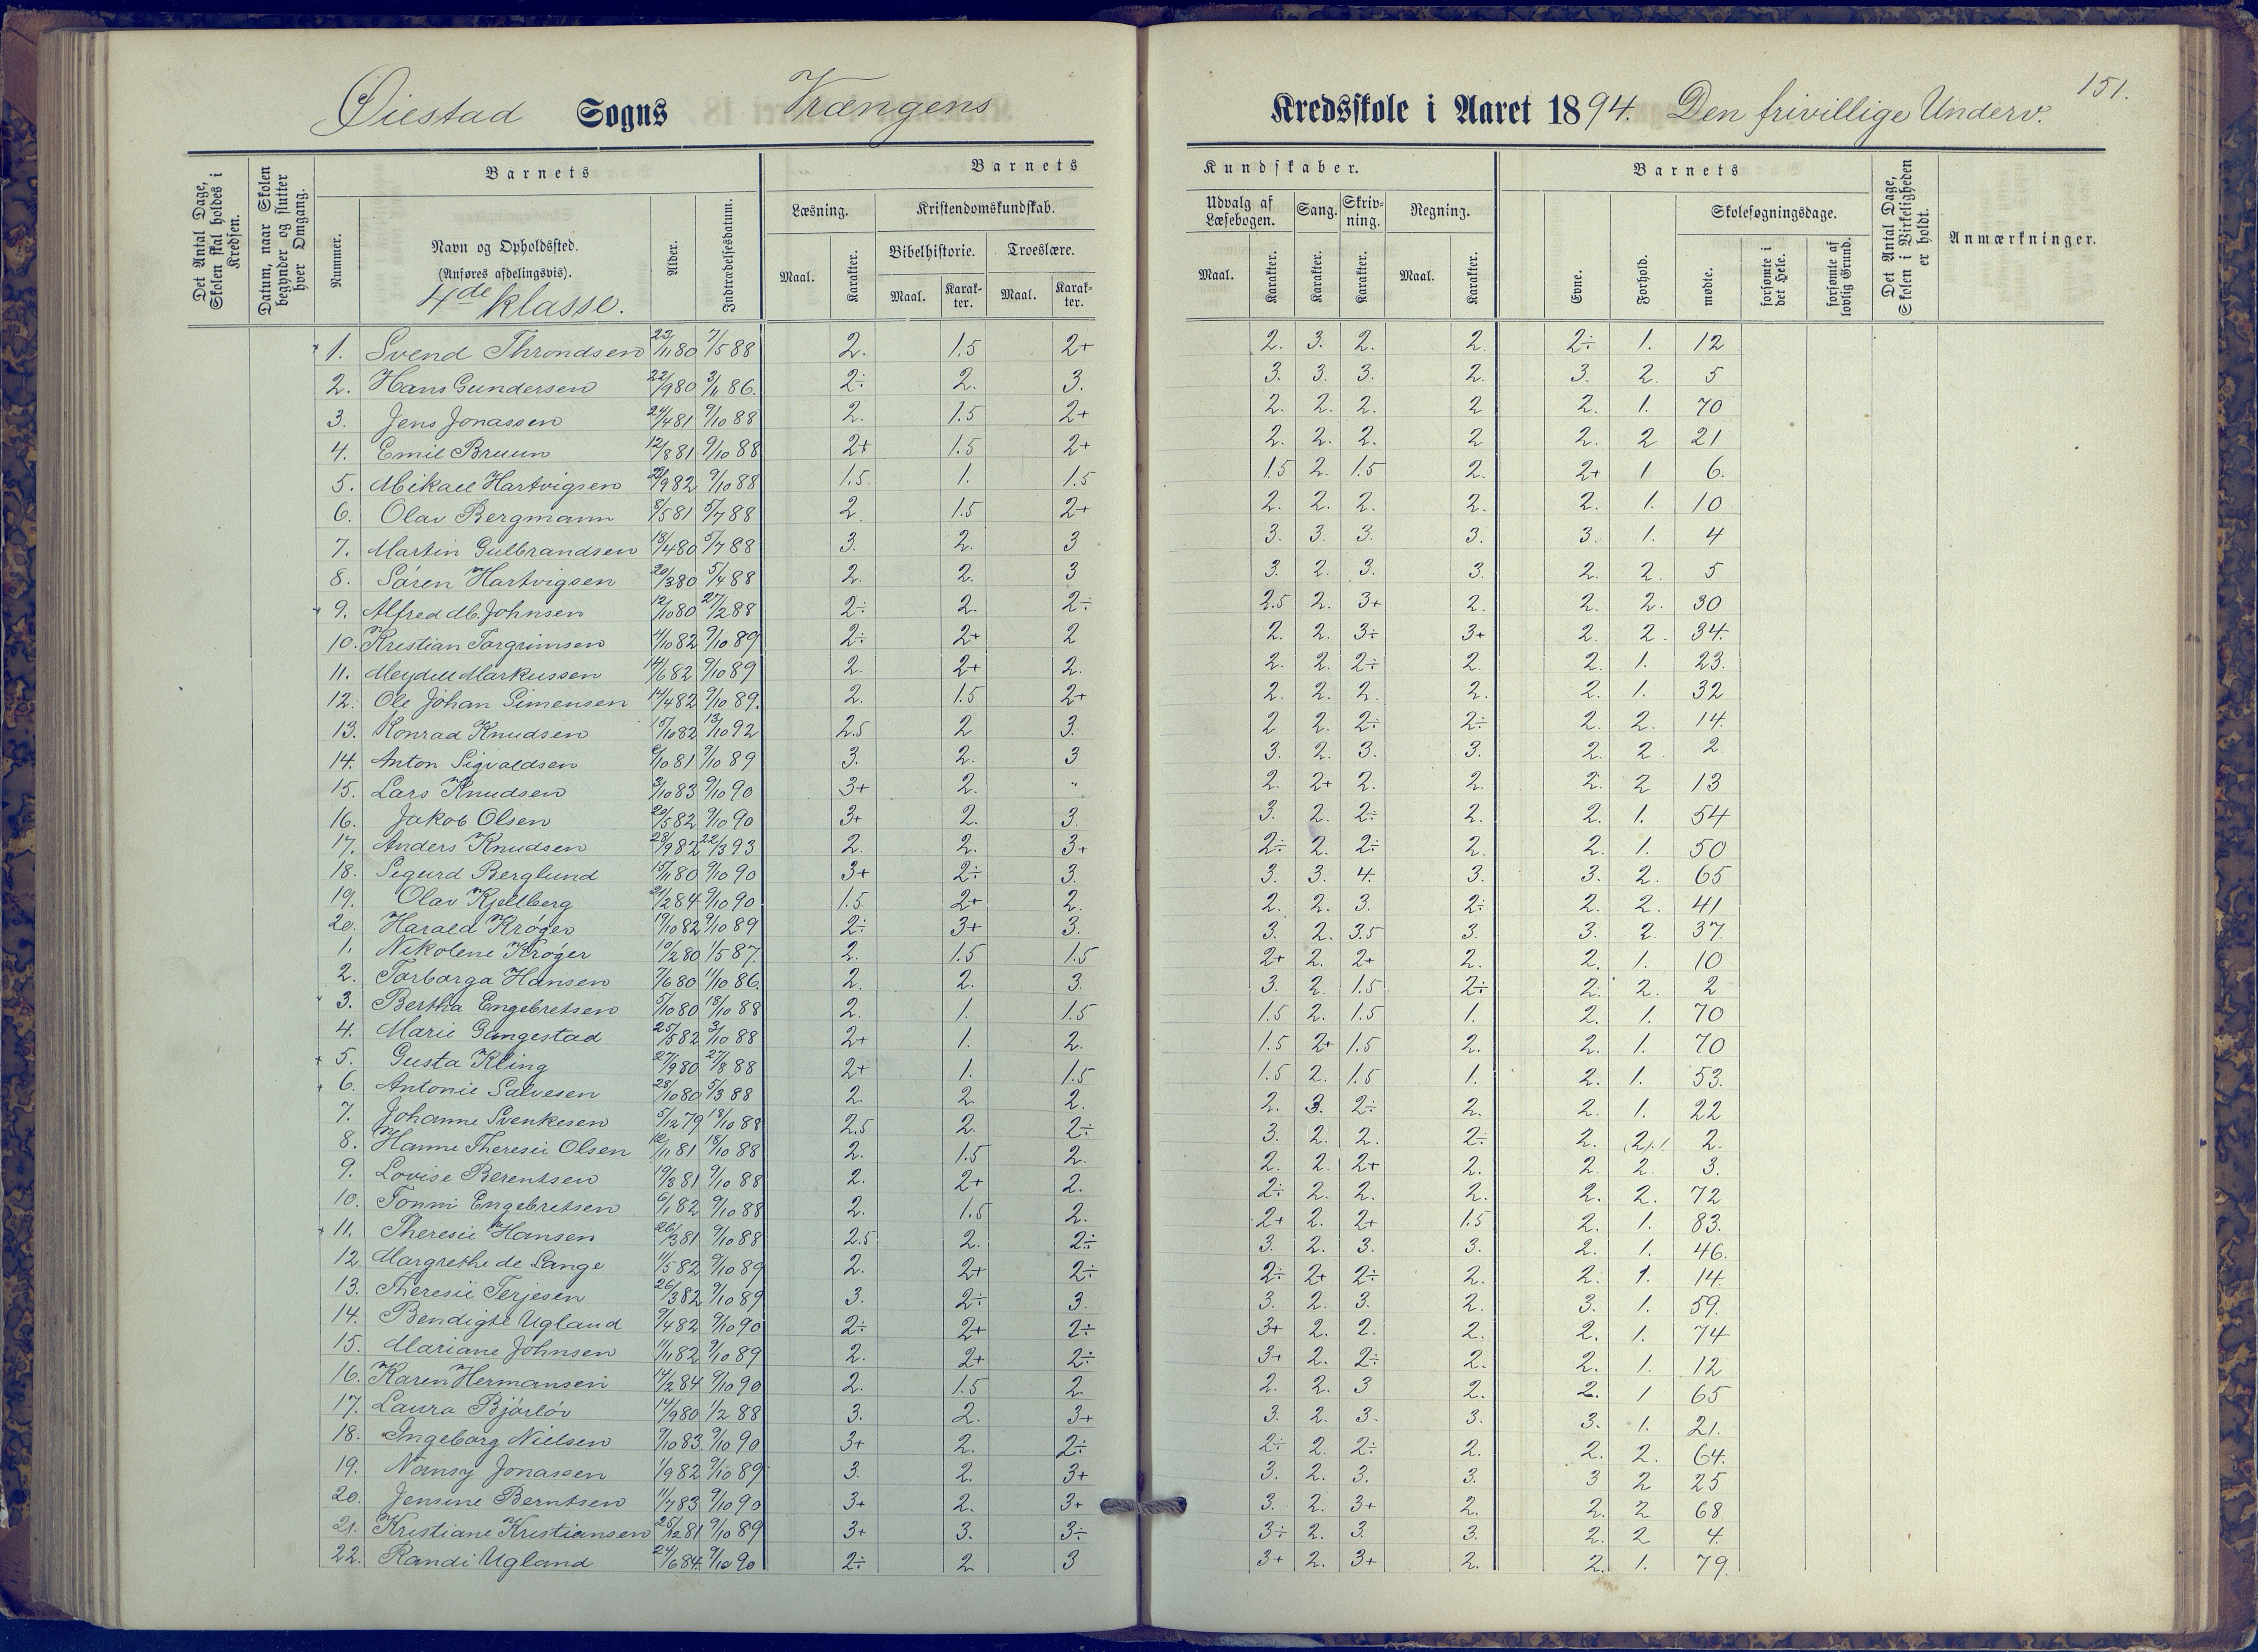 151.
Øiestad Sogns Vrængens Kredsskole i Aaret 1894. Den frivillige Underv.
Det Antal Dage, Skolen skal holdes i Kredsen.
Datum, naar Skolen begynder og slutter hver Omgang.
Barnets
Nummer.
Navn og Opholdssted.
(Anføres afdelingsvis).
4de klasse.
Alder.
Indtrædelsesdatum.
Barnets Kundskaber.
Læsning.
Maal. Karakter.
Kristendomskundskab.
Bibelhistorie. Troeslære.
Maal. Karakter. Maal. Karakter.
Udvalg af Læsebogen.
Maal. Karakter.
Sang.
Karakter.
Skrivning.
Karakter.
Regning.
Maal. Karakter.
Barnets
Evne.
Forhold.
Skolesøgningsdage.
mødte.
forsømte i det Hele.
forsømte af lovlig Grund.
Det Antal Dage, Skolen i Virkeligheden er holdt.
Anmærkninger.
1. Svend Throndsen 23/11 80 7/5 88 2. 1.5 2+ 2. 3. 2. 2. 2÷ 1. 12
2. Hans Gundersen 22/9 80 3/11 86. 2÷ 2. 3. 3. 3. 3. 2. 3. 2. 5
3. Jens Jonassen 24/4 81 9/10 88 2. 1.5 2+ 2. 2. 2. 2 2. 1. 70
4. Emil Bruun 12/8 81 9/10 88 2+ 1.5 2+ 2. 2. 2. 2 2. 2 21
5. Mikael Hartvigsen 9/82 9/10 88 1.5. 1. 1.5 1.5 2. 1.5 2. 2+ 1 6.
6. Olav Bergmann 8/5 81 5/7 88 2. 1.5 2+ 2. 2. 2. 2. 2. 1. 10
7. Martin Gulbrandsen 18/4 80 5/7 88 3. 2. 3 3. 3. 3. 3. 3. 1. 4
8. Sören Hartvigsen 20/3 80 5/4 88 2. 2. 3 3. 2. 3. 3. 2. 2. 5
9. Alfred M. Johnsen 12/10 80 27/2 88 2÷ 2. 2÷ 2.5 2. 3+ 2. 2. 2. 30
10. Kristian Torgrimsen 4/10 82 9/10 89 2÷ 2+ 2 2. 2. 3÷ 3+ 2. 2. 34.
11. Meydell Markussen 14/6 82 9/10 89 2. 2+ 2. 2. 2. 2÷ 2. 2. 1. 23.
12. Ole Johan Simensen 14/4 82 9/10 89. 2. 1.5 2+ 2. 2. 2. 2. 2. 1. 32
13. Konrad Knudsen 15/10 82 13/10 92 2.5 2 3. 2 2. 2÷ 2÷ 2. 2. 14.
14. Anton Sigvaldsen 6/10 81 9/10 89 3. 2. 3 3. 2. 3. 3. 2. 2. 2.
15. Lars Knudsen 2/10 83 9/10 90 3+ 2. " 2. 2+ 2. 2. 2. 2 13
16. Jakob Olsen 20/5 82 9/10 90 3+ 2. 3. 3. 2. 2÷ 2. 2. 1. 54
17. Anders Knudsen 28/9 82 22/3 93 2. 2. 3+ 2÷ 2. 2÷ 2. 2. 1. 50
18. Sigurd Berglund 15/11 80 9/10 90 3+ 2÷ 3. 3. 3. 4. 3. 3. 2. 65
19. Olav Kjellberg 21/2 84 9/10 90 1.5 2+ 2. 2. 2. 3. 2÷ 2. 2. 41
20. Harald Krøger 19/10 82 9/10 89 2÷ 3+ 3. 3. 2. 3.5 3. 3. 2. 37.
1. Nikolene Krøger 10/2 80 1/5 87. 2. 1.5 1.5 2+ 2. 2+ 2. 2. 1. 10
2. Torborga Hansen 7/6 80 11/10 86. 2. 2. 3. 3. 2. 1.5 2÷ 2. 2. 2
3. Bertha Engebretsen 5/10 80 18/10 88 2. 1. 1.5 1.5 2. 1.5 1. 2. 1. 70
4. Marie Gungestad 25/5 82 3/10 88 2+ 1. 2. 1.5 2+ 1.5 2. 2. 1. 70
5. Gusta Kling 27/9 80 27/8 88 2+ 1. 1.5 1.5 2. 1.5 1. 2. 1. 53.
6. Antonie Salvesen 28/10 80 5/3 88 2. 2. 2. 2. 3. 2÷ 2. 2. 1. 22
7. Johanne Svenkesen 5/12 79 18/10 88 2.5 2. 2÷ 3. 2. 2. 2÷ 2. 2. 2.
8. Hanne Theresie Olsen 12/11 81 18/10 88 2. 1.5 2. 2. 2. 2+ 2. 2. 2. 3.
9. Lovise Berentsen 19/3 81 9/10 88 2. 2+ 2. 2÷ 2. 2. 2. 2. 2. 72
10. Tonni Engebretsen 6/1 82 9/10 88 2. 1.5 2. 2+ 2. 2+ 1.5 2. 1. 83.
11. Theresie Hansen 26/3 81 9/10 88 2.5 2. 2÷ 3. 2. 3. 3. 2. 1. 46.
12. Margrethe de Lange 11/5 82 9/10 89 2. 2+ 2÷ 2÷ 2+ 2÷ 2. 2. 1. 14.
13. Theresie Terjesen 26/3 82 9/10 89 3. 2÷ 3. 3. 2. 3. 2. 3. 1. 59.
14. Bendigte Ugland 9/4 82 9/10 90 2÷ 2+ 2÷ 3+ 2. 2. 2. 2. 1. 74
15. Mariane Johnsen 11/11 82 9/10 89 2. 2+ 2÷ 3+ 2. 2÷ 2. 2. 1. 12
16. Karen Hermansen 14/2 84 9/10 90 2. 1.5 2 2. 2. 3 2. 2. 1 65
17. Laura Bjørløv 14/9 80 1/2 88 3. 2. 3+ 3. 2. 3. 3. 3. 1. 21.
18. Ingeborg Nielsen 7/10 83. 9/10 90 3+ 2. 2÷ 2÷ 2. 2÷ 2. 2. 2. 64.
19. Nansy Jonassen 1/9 82 9/10 89 3. 2. 3+ 3. 2. 3. 3. 3 2 25
20. Jensine Berntsen 11/7 83 9/10 90 3+ 2. 3+ 3. 2. 3+ 2. 2. 2 68
21. Kristiane Kristiansen 25/12 81 9/10 89 3+ 3. 3÷ 3÷ 2. 3. 3. 2. 2 4.
22. Randi Ugland 24/6 84. 9/10 90 2÷ 2 3 3+ 2. 3+ 2. 2. 1. 79.